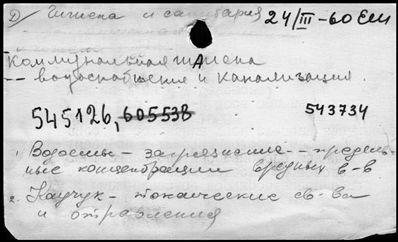 Д) Гигиена и санитария 24/III-60 ЕМ
Коммунальная гигиена
-- водоснабжение и канализация.
545126, 605538 543734
1. Водоемы - загрязнение -- предель-
ные концентрации вредных в-в
2. Каучук - токсические св-ва
и отравления